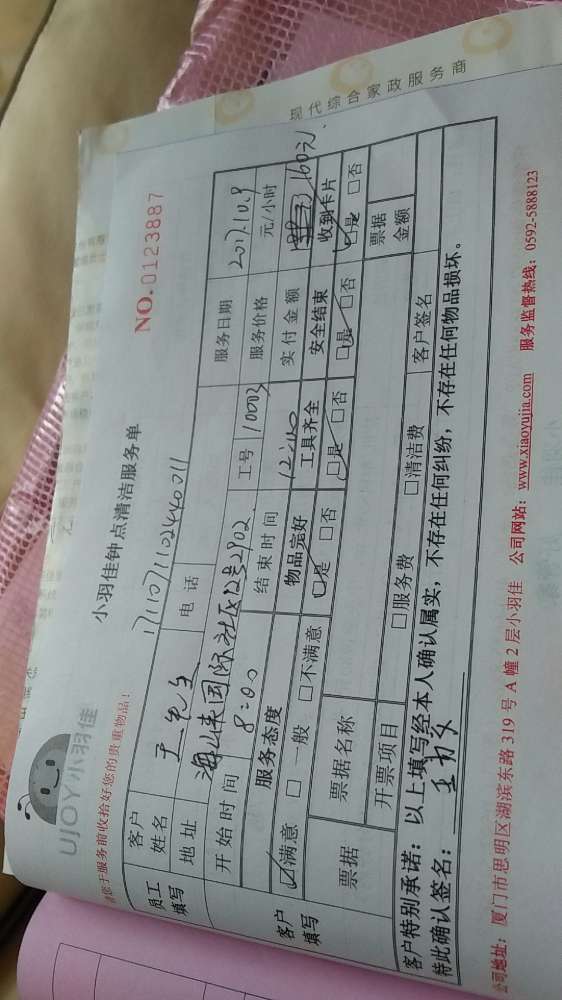 现代综合家政服务商
UJOY小羽佳
请您于服务前收拾好您的贵重物品！
小羽佳钟点清洁服务单
NO.0123887
员工填写
客户姓名
电话
服务日期 2017.10.9
地址
工号 10003
服务价格 元/小时
开始时间 8:00
结束时间 12:40
实付金额 160元
客户填写
服务态度 物品完好 工具齐全 安全结束 收到卡片
☑满意 □一般 □不满意 ☑是 □否 ☑是 □否 ☑是 □否 ☑是 □否
票据
票据名称
票据金额
开票项目 □服务费 □清洁费 客户签名
客户特别承诺：以上填写经本人确认属实，不存在任何纠纷，不存在任何物品损坏。
特此确认签名：
公司地址：厦门市思明区湖滨东路319号A幢2层小羽佳 公司网站：www.xiaoyujia.com 服务监督热线：0592-5888123